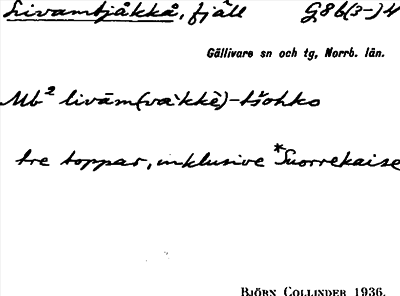 Livamtjåkkå, fjäll G86(3-)4
Gällivare sn och tg, Norrb. län.
Mb² livām(va`kkē)-tšohko
tre toppar, inklusive *Suorrekaise
BJÖRN COLLINDER 1936.